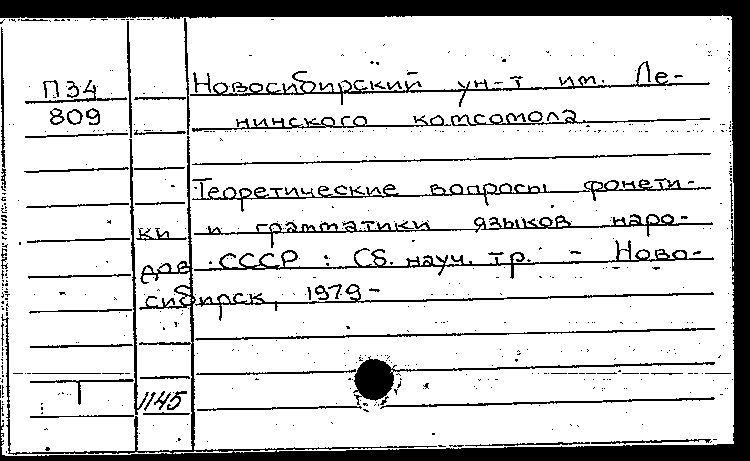 П34
809
Новосибирский ун-т им. Ле-
нинского комсомола.
Теоретические вопросы фонети-
ки и грамматики языков наро-
дов СССР : Сб. науч. тр. - Ново-
сибирск, 1979-
1145